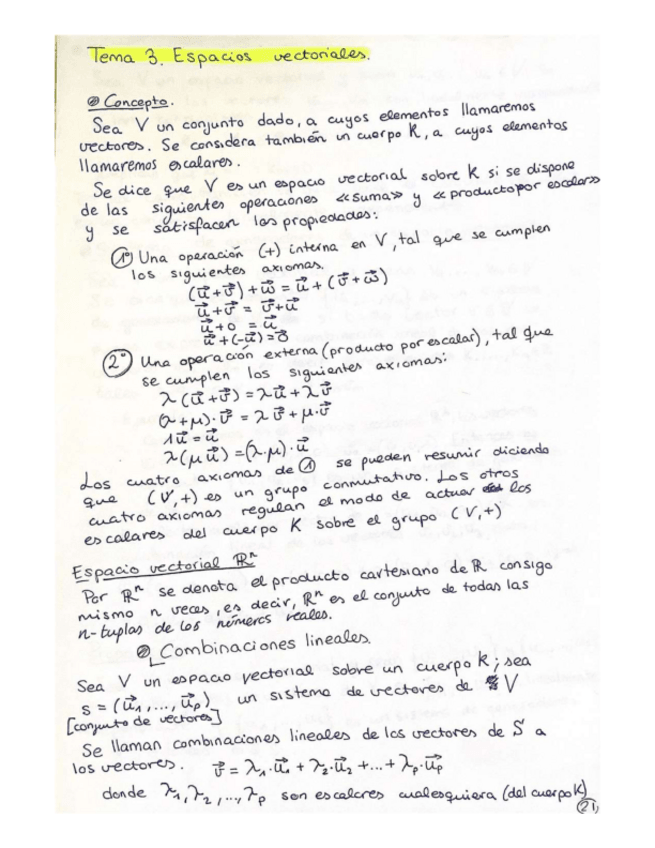 Tema 3. Espacios vectoriales.
Concepto.
Sea V un conjunto dado, a cuyos elementos llamaremos
vectores. Se considera también un cuerpo K, a cuyos elementos
llamaremos escalares.
Se dice que V es un espacio vectorial sobre K si se dispone
de las siguientes operaciones «suma» y «producto por escalar»
y se satisfacen las propiedades:
1º Una operación (+) interna en V, tal que se cumplen
los siguientes axiomas.
(u⃗+v⃗)+w⃗ = u⃗+(v⃗+w⃗)
u⃗+v⃗ = v⃗+u⃗
u⃗+0 = u⃗
u⃗+(-u⃗)=0⃗
2º Una operación externa (producto por escalar), tal que
se cumplen los siguientes axiomas:
λ(u⃗+v⃗)=λu⃗+λv⃗
(λ+μ)·v⃗ = λv⃗+μ·v⃗
1u⃗=u⃗
λ(μu⃗)=(λ·μ)·u⃗
Los cuatro axiomas de 1 se pueden resumir diciendo
que (V,+) es un grupo conmutativo. Los otros
cuatro axiomas regulan el modo de actuar los
escalares del cuerpo K sobre el grupo (V,+)
Espacio vectorial ℝⁿ
Por ℝⁿ se denota el producto cartesiano de ℝ consigo
mismo n veces, es decir, ℝⁿ es el conjunto de todas las
n-tuplas de los números reales.
Combinaciones lineales.
Sea V un espacio vectorial sobre un cuerpo K; sea
s = (u⃗₁,...,u⃗p) un sistema de vectores de V
[conjunto de vectores]
Se llaman combinaciones lineales de los vectores de S a
los vectores. v⃗ = λ₁·u⃗₁ + λ₂·u⃗₂ +...+ λp·u⃗p
donde λ₁,λ₂,...,λp son escalares cualesquiera (del cuerpo K)
21